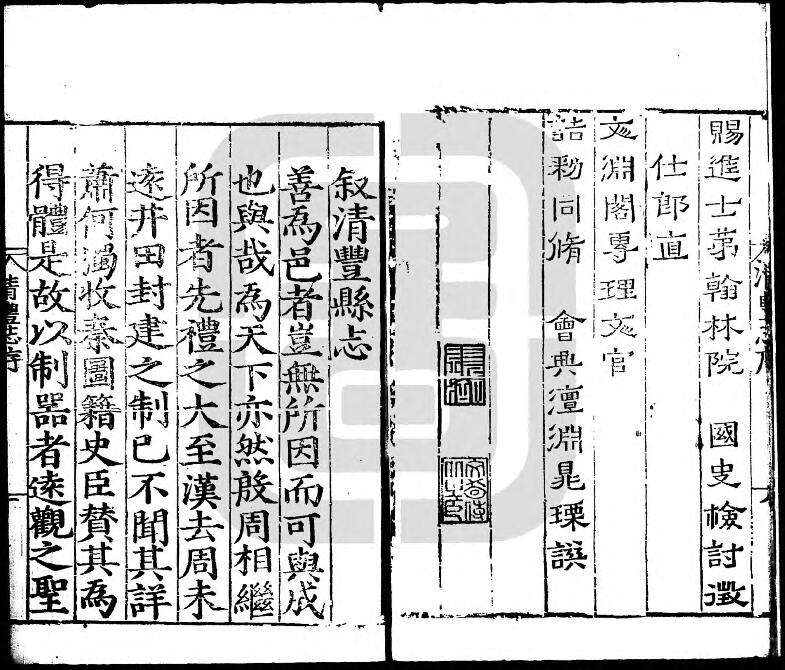 賜進士苐翰林院 國史檢討徵
仕郎直
文淵閣專理文官
誥勑同脩 會典澶淵晁瑮譔
叙清豐縣志
善為邑者豈無所因而可與成
也與哉為天下亦然殷周相繼
所因者先禮之大至漢去周未
逺井田封建之制已不聞其詳
蕭何濁收秦圖籍史臣賛其為
得體是故以制器者逺觀之聖
清豐志序